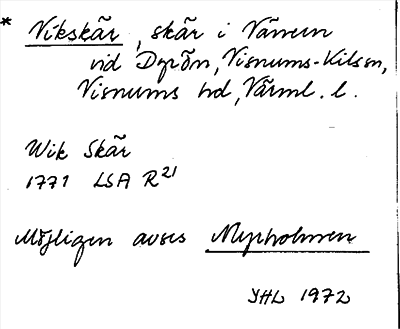 * Vikskär, skär i Vänern
vid Dyrön, Visnums-Kils sn,
Visnums hd, Värml. l.
Wik Skär
1771 LSA R21
Möjligen avses Myrholmen
JHL 1972